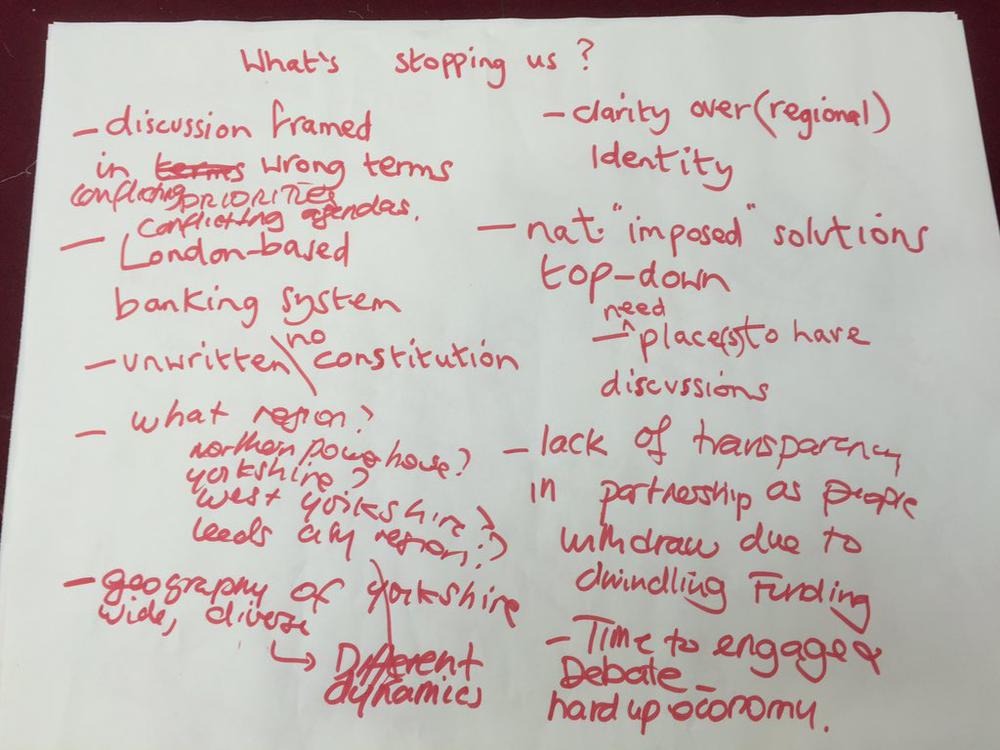 What's stopping us?
- discussion framed
in terms wrong terms
conflicting PRIORITIES
conflicting agendas.
- London-based
banking system
- unwritten\no constitution
- what region?
northern powerhouse?
yorkshire?
west yorkshire?
Leeds city region??
- geography of yorkshire
wide, diverse
↳ Different
dynamics
- clarity over (regional)
Identity
- nat. "imposed" solutions
top-down
need
- ^place(s) to have
discussions
- lack of transparency
in partnership as people
withdraw due to
dwindling Funding
- Time to engage &
Debate -
hard up economy.